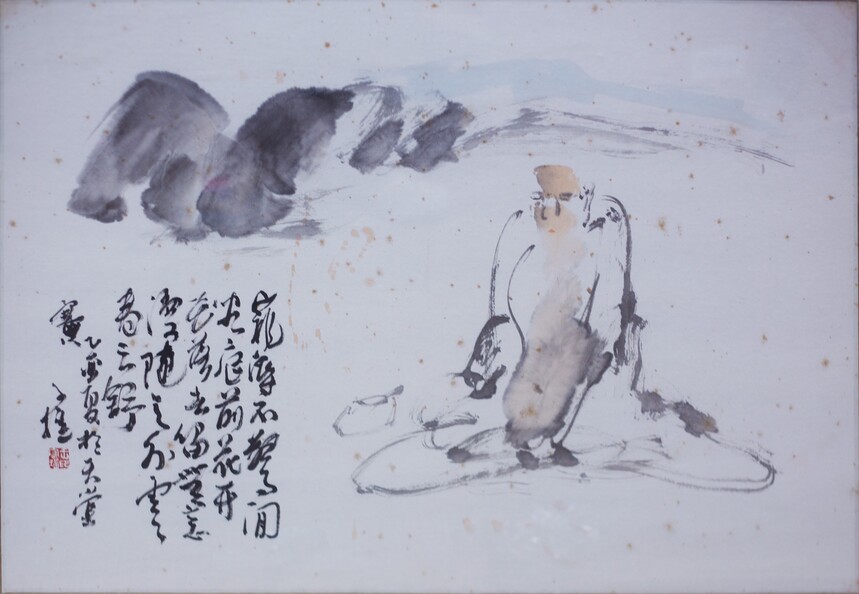 寵辱不驚閒
看庭前花开
花落去留無意
漫隨天外雲
卷雲舒
夏於天